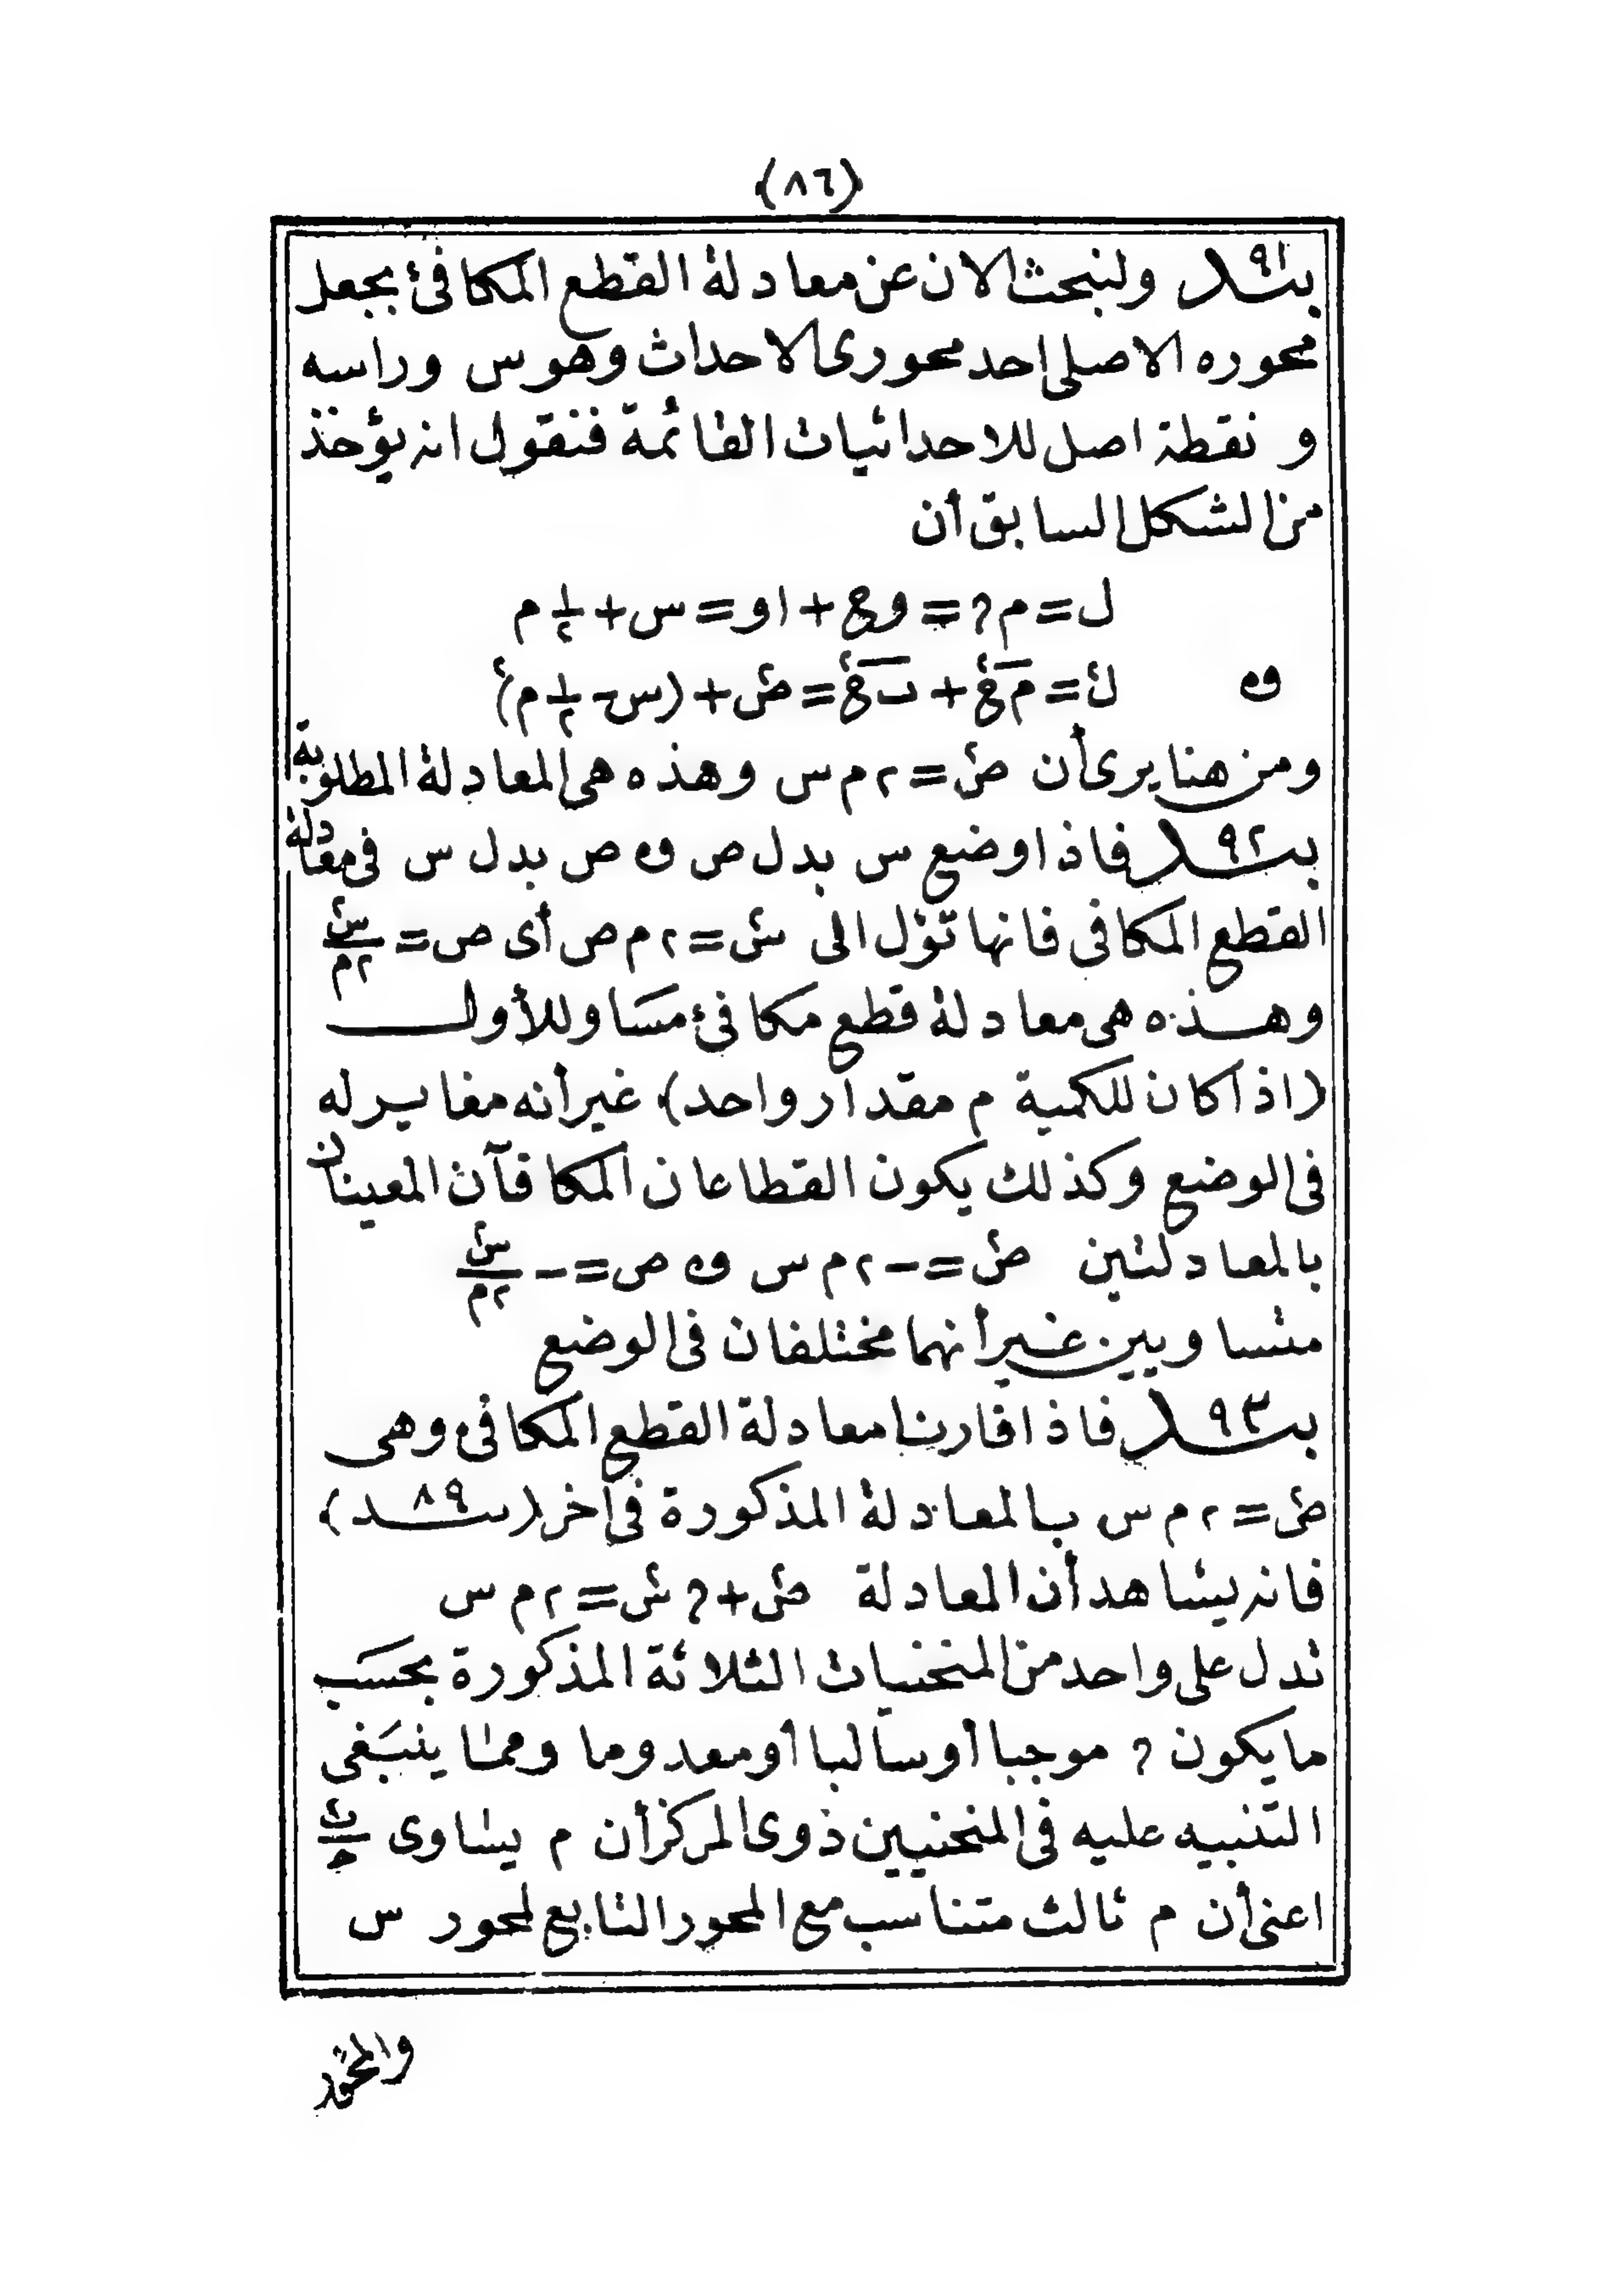 (٨٦)
بند ٩١ ولنبحث الان عن معادلة القطع المكافئ بجعل
محوره الاصلى احد محورى الاحداث وهو س وراسه
و نقطة اصل للاحداثيات القائمة فنقول انه يؤخذ
من الشكل السابق أن
ل = م? = وع + او = س + ١/٢ م
و ل٢ = مع٢ + ںع٢ = ص٢ + (س - ١/٢ م)٢
ومن هنا يرى أن ص٢ = ٢ م س وهذه هى المعادلة المطلوبة
بند ٩٢ فاذا وضع س بدل ص و ص بدل س فى معادلة
القطع المكافى فانها تؤل الى س٢ = ٢ م ص أى ص = س٢/٢م
وهذه هى معادلة قطع مكافئ مساو للأول
(اذا كان للكمية م مقدار واحد) غير أنه مغاير له
فى الوضع وكذلك يكون القطاعان المكافآن المعينان
بالمعادلتين ص٢ = - ٢ م س و ص = - س٢/٢م
متساويين غير أنهما مختلفان فى الوضع
بند ٩٣ فاذا قارنا معادلة القطع المكافى وهى
ص٢ = ٢ م س بالمعادلة المذكورة فى اخر (بند ٨٩)
فانه يشاهد أن المعادلة ص٢ + ? س٢ = ٢ م س
تدل على واحد من المنحنيات الثلاثة المذكورة بحسب
ما يكون ? موجبا أوسالبا أومعدوما ومما ينبغى
التنبيه عليه فى المنحنيين ذوى المركز أن م يساوى
اعنى أن م ثالث متناسب مع المحور التابع لمحور س
والمحور